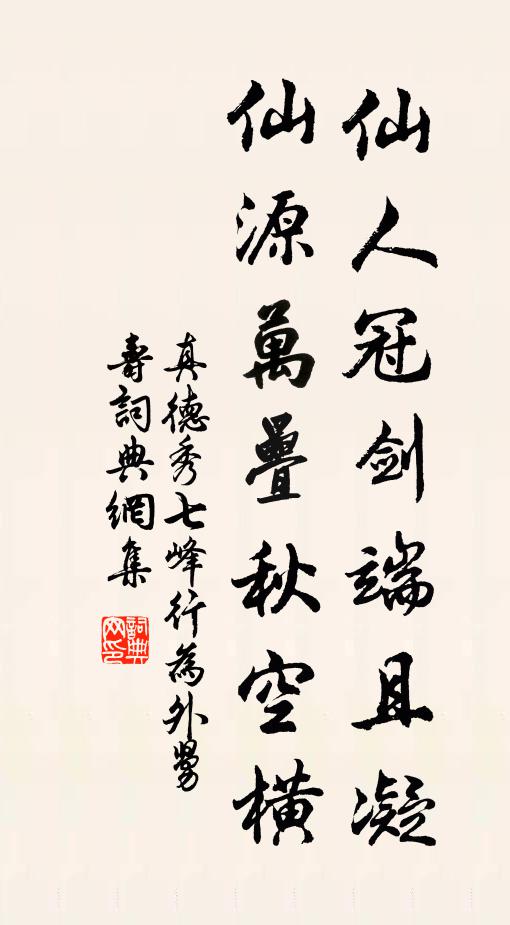 仙人冠剑端且凝
仙源萬疊秋空橫
真德秀七峰行為外舅
壽詞典網集
詞典
网印